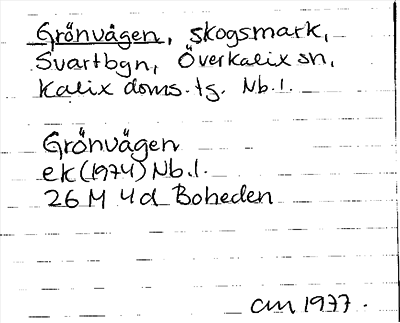 Grönvägen, skogsmark,
Svartbyn, Överkalix sn,
Kalix doms. tg. Nb. l.
Grönvägen
ek (1974) Nb. l.
26 M 4d Boheden
am 1977.